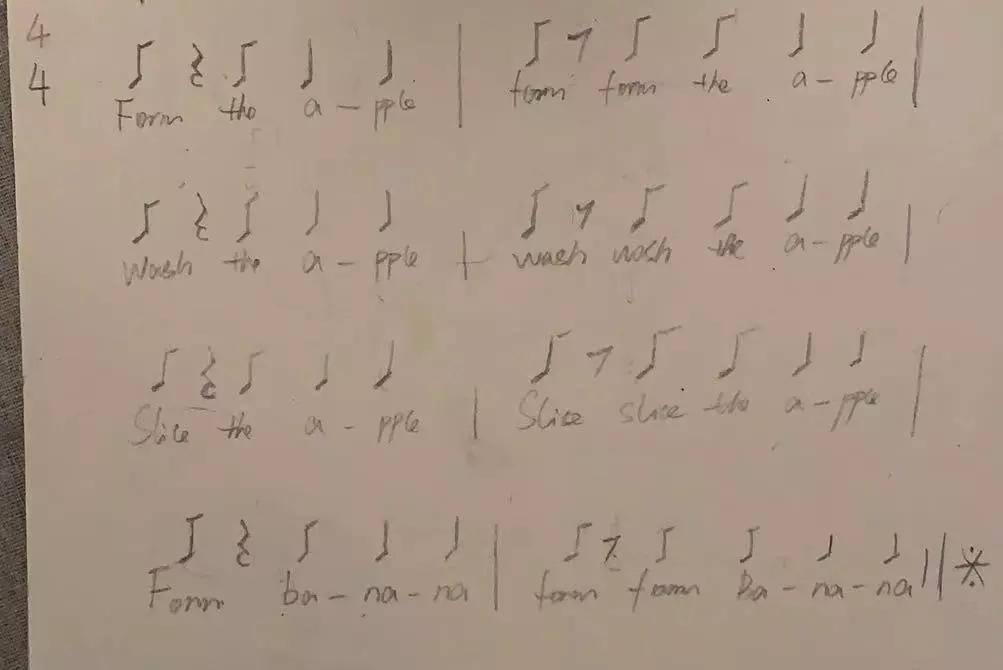 4
4
Form the a - pple | form form the a - pple |
Wash the a - pple | wash wash the a - pple |
Slice the a - pple | Slice slice the a - pple |
Form ba - na - na | form form Ba - na - na || ※